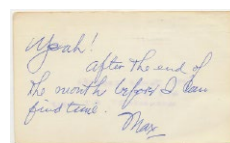 Yeah!
After the end of
the month before I can
find time.
Max